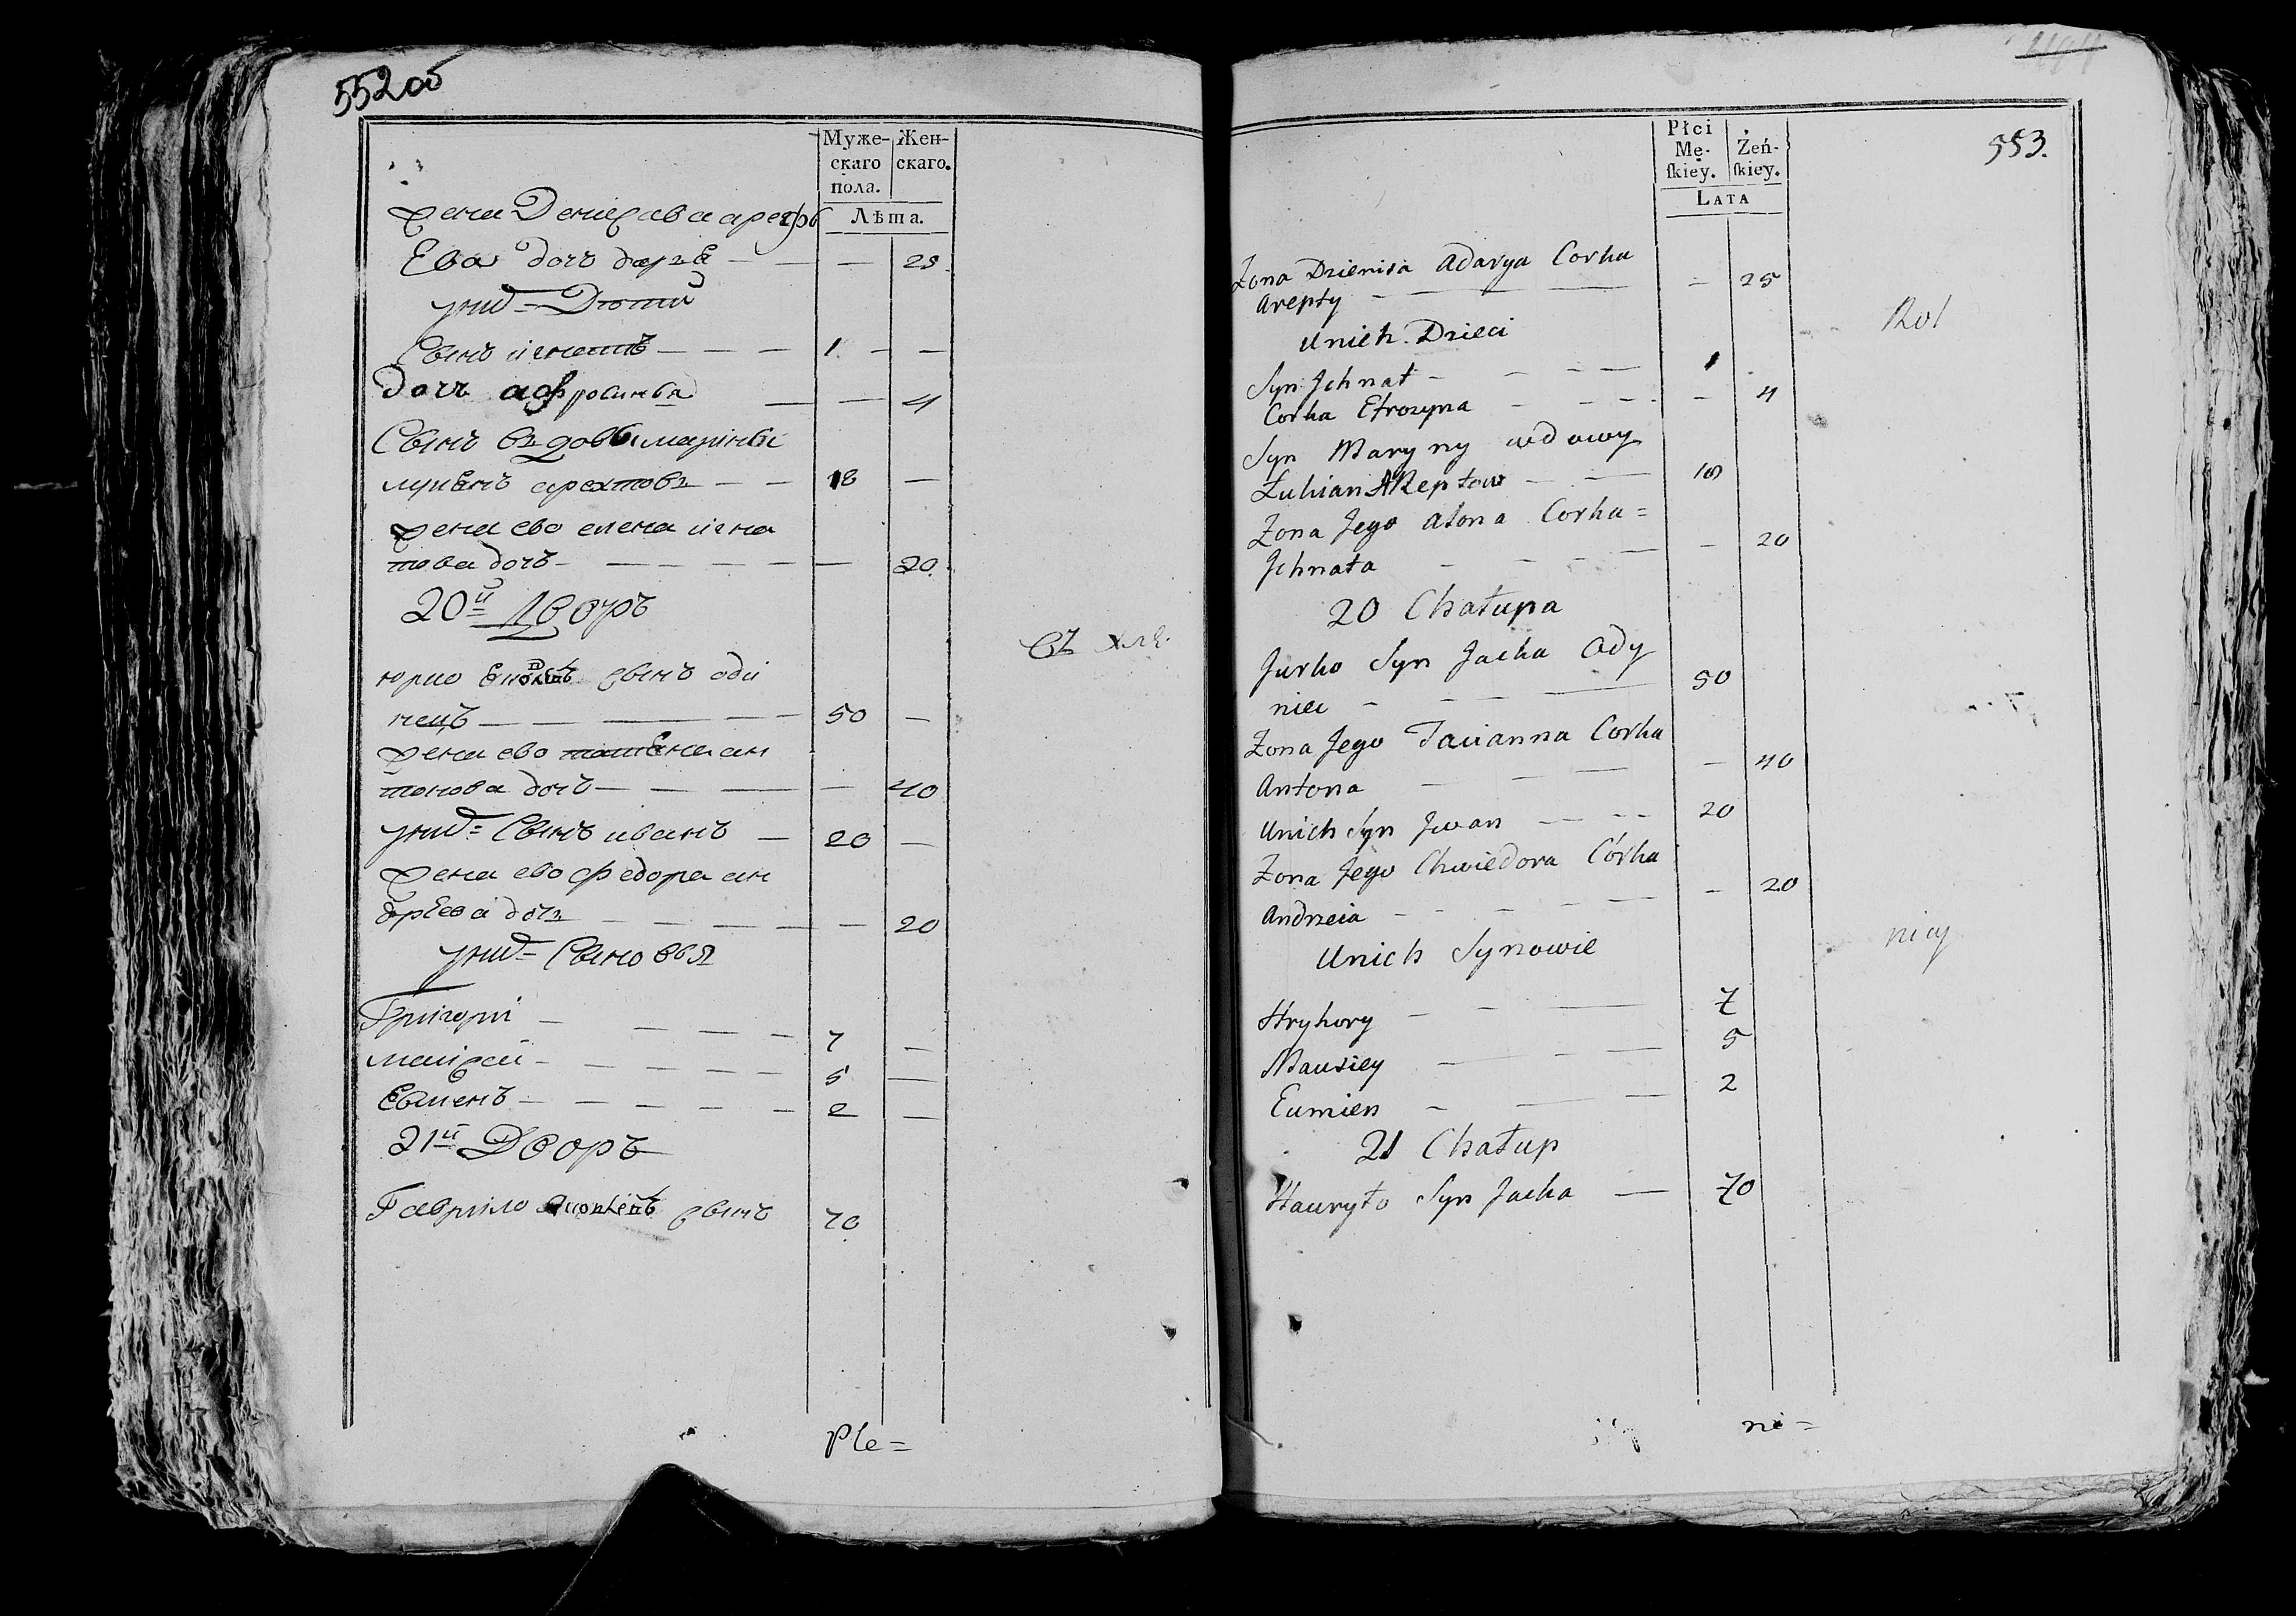 552об
Муже-
скаго
пола.
Жен-
скаго.
Лѣта.
жена Дениса
Ева дочъ дарья — — — 25
уних Дети
Сынъ игнатъ — — — 1 — —
дочъ — — 4
Сынъ вдовы марины
лукянъ арехтовъ — — 18 —
жена ево елена игна
това дочъ — — — — — — 20
20й Дворъ
юрко сынъ оди
нецъ — — — — — 50 —
жена ево татьяна ан
тонова дочъ — — — — 40
уних Сынъ иванъ — 20 —
жена ево федора ан
дреева дочъ — — — — — 20
уних Сыновья
Григорий — — — — 7 —
маисей — — — — — 5 —
Евменъ — — — — — 2 —
21й Дворъ
Гаврило сынъ 70
Ple=
въ хле
553.
Płci
Mę-
skiey.
Żeń-
skiey.
LATA
Żona Dzienisa Adarya Corka
Arepty — — — — 25
Unich Dzieci
Syn Jchnat — — — — 1
Corka Efrozyna — — — — — 4
Syn Maryny wdowy
Łukian Areptow — — 18
Żona Jego Alona Corka=
Jchnata — — — — — 20
20 Chałupa
Jurko Syn Jacka Ody
niec — — — — 50
Żona Jego Tacianna Corka
Antona — — — — 40
Unich Syn Jwan — — — 20
Żona Jego Chwiedora Córka
Andrzeia — — — — — — 20
Unich Synowie
Hryhory — — — 7
Mausiey — — — — 5
Eumien — — — 2
21 Chałup
Hauryło Syn Jacka — 70
Rol
nicy
ni=